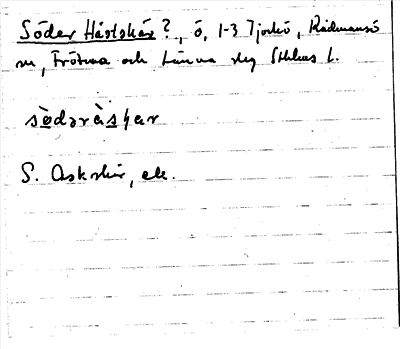 Söder Hästskär?, ö, 1-3 Tjockö, Rådmansö
sn, Frötuna och Länna skg Sthlms l.
södəràspar
S. Askskär, ek.